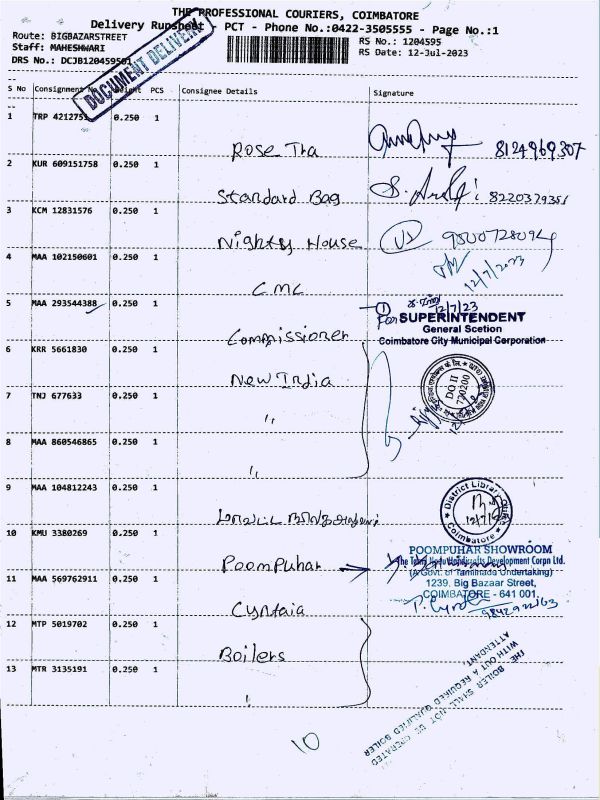 THE PROFESSIONAL COURIERS, COIMBATORE
Delivery Runsheet - PCT - Phone No.:0422-3505555 - Page No.:1
Route: BIGBAZARSTREET
RS No.: 1204595
Staff: MAHESHWARI
RS Date: 12-Jul-2023
DRS No.: DCJB120459501
DOCUMENT DELIVERY
S No Consignment No Weight PCS Consignee Details Signature
1 TRP 4212751 0.250 1
Rose Tra 8124969307
2 KUR 609151758 0.250 1
Standard Bag 8220379351
3 KCM 12831576 0.250 1
Nighty House
4 MAA 102150601 0.250 1
CMC 12/7/2023
5 MAA 293544388 0.250 1
Commissioner
1 12/7/23
For SUPERINTENDENT
General Scetion
Coimbatore City Municipal Corporation
6 KRR 5661830 0.250 1
New India
DO II
730200
7 TNJ 677633 0.250 1
"
8 MAA 860546865 0.250 1
"
9 MAA 104812243 0.250 1
மாவட்ட
District Library
Coimbatore
12/7/23
10 KMU 3380269 0.250 1
Poompuhar
POOMPUHAR SHOWROOM
The Tamil Nadu Handicrafts Development Corpn Ltd.
(A Govt. of Tamilnadu Undertaking)
1239, Big Bazaar Street,
COIMBATORE - 641 001.
11 MAA 569762911 0.250 1
Cyntaia
12 MTP 5019702 0.250 1
Boilers
13 MTR 3135191 0.250 1
THE BOILER SHALL NOT BE OPERATED
WITH OUT A REQUIRED QUALIFIED BOILER
ATTENDANT
10